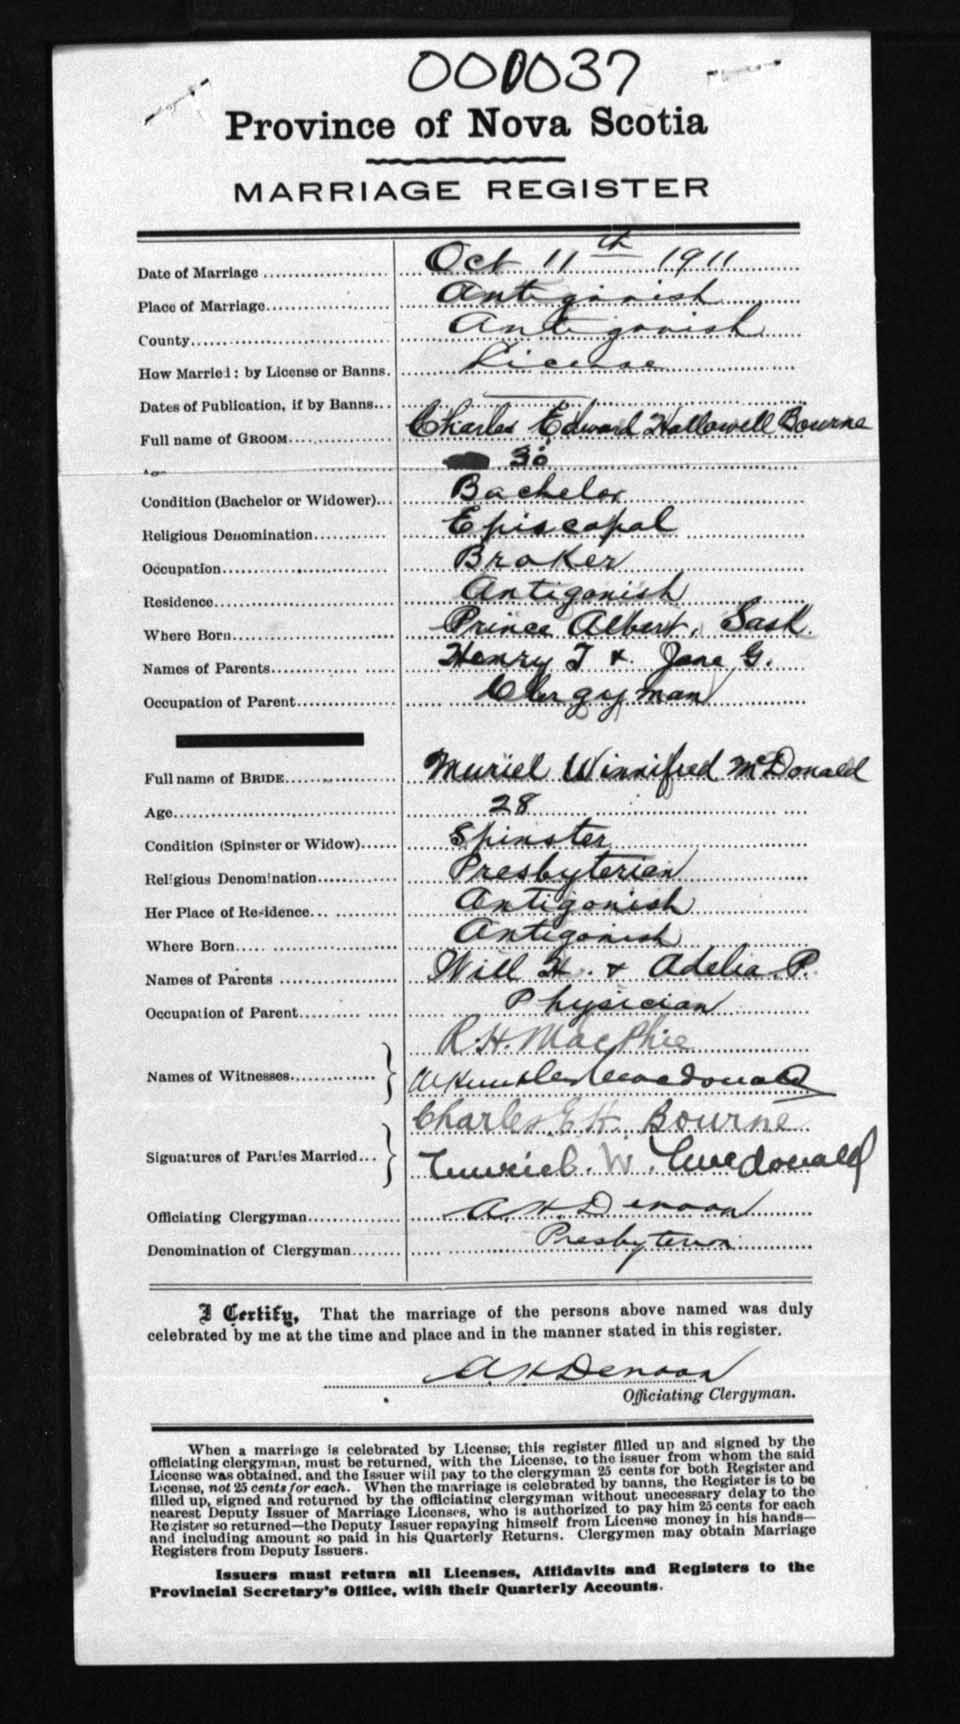 000037
Province of Nova Scotia
MARRIAGE REGISTER
Date of Marriage Oct 11th 1911
Place of Marriage Antigonish
County Antigonish
How Married: by License or Banns. License
Dates of Publication, if by Banns
Full name of GROOM Charles Edward Hallowell Bourne
30
Condition (Bachelor or Widower) Bachelor
Religious Denomination Episcopal
Occupation Broker
Residence Antigonish
Where Born Prince Albert, Sask.
Names of Parents Henry T & Jane G.
Occupation of Parent Clergyman
Full name of BRIDE Muriel Winnifred McDonald
Age 28
Condition (Spinster or Widow) Spinster
Religious Denomination Presbyterien
Her Place of Residence Antigonish
Where Born Antigonish
Names of Parents Will H. & Adelia P.
Occupation of Parent Physician
R. H. MacPhie
Names of Witnesses Macdonald
Charles E H. Bourne
Signatures of Parties Married Muriel. W. Macdonald
Officiating Clergyman A. H. Denoon
Denomination of Clergyman Presbyterian
I Certify, That the marriage of the persons above named was duly
celebrated by me at the time and place and in the manner stated in this register.
A H Denoon
Officiating Clergyman.
When a marriage is celebrated by License, this register filled up and signed by the
officiating clergyman, must be returned, with the License, to the issuer from whom the said
License was obtained, and the Issuer will pay to the clergyman 25 cents for both Register and
License, not 25 cents for each. When the marriage is celebrated by banns, the Register is to be
filled up, signed and returned by the officiating clergyman without unnecessary delay to the
nearest Deputy Issuer of Marriage Licenses, who is authorized to pay him 25 cents for each
Register so returned—the Deputy Issuer repaying himself from License money in his hands—
and including amount so paid in his Quarterly Returns. Clergymen may obtain Marriage
Registers from Deputy Issuers.
Issuers must return all Licenses, Affidavits and Registers to the
Provincial Secretary's Office, with their Quarterly Accounts.